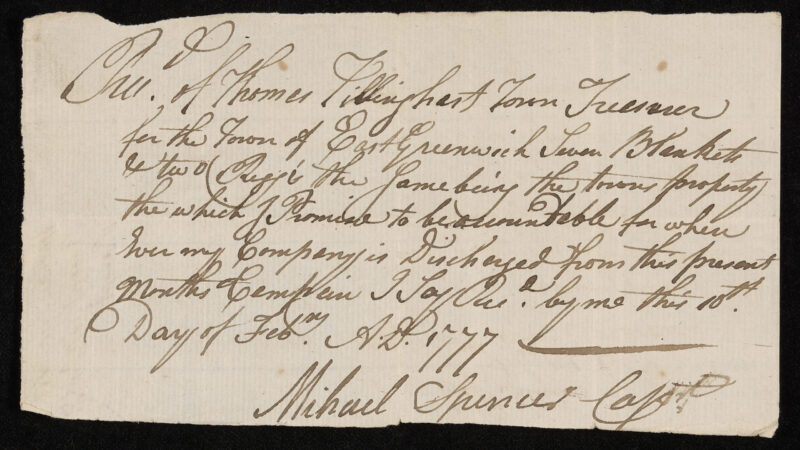 Recd. of Thomas Tillinghast Town Treesurer
for the Town of East Greenwich Seven Blankets
& two Rugg's the Same being the towns property
the which I Promise to be accountable for when
Ever my Company is Discharged from this present
Months Campain I Say Recd. by me this 10th.
Day of Febry. A.D. 1777
Mihael Spencer Capt